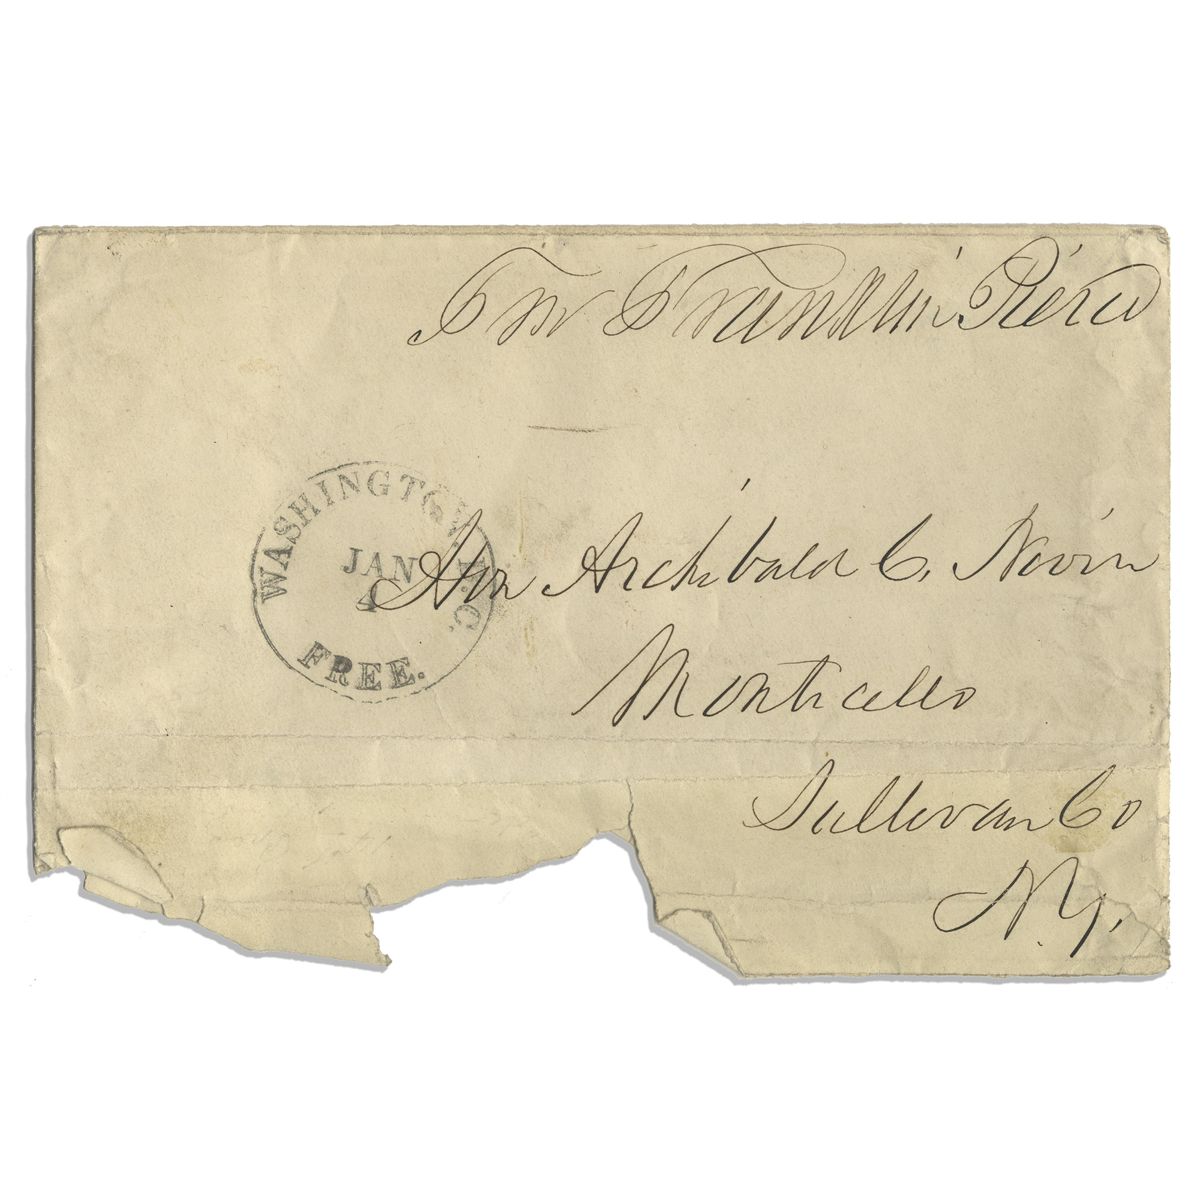 Fm Franklin Pierce
WASHINGTON. D.C.
JAN
4
FREE.
Hon Archibald C. Niven
Monticello
Sullivan Co
N.Y.